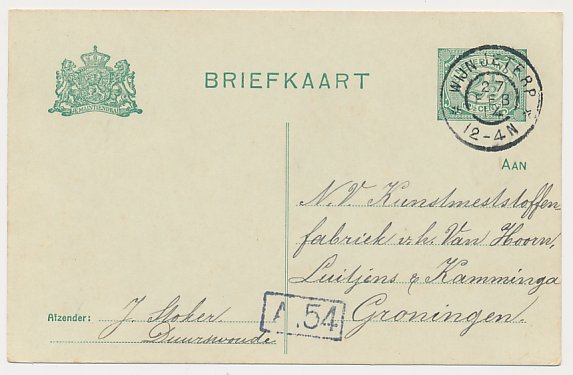 BRIEFKAART
WIJNJETERP
27
FEB
12-4N
AAN
N.V Kunstmeststoffen-
fabriek v.h. Van Hoorn,
Luitjens & Kamminga
Groningen.
Afzender: J. Stoker
Duurswoude
A.54